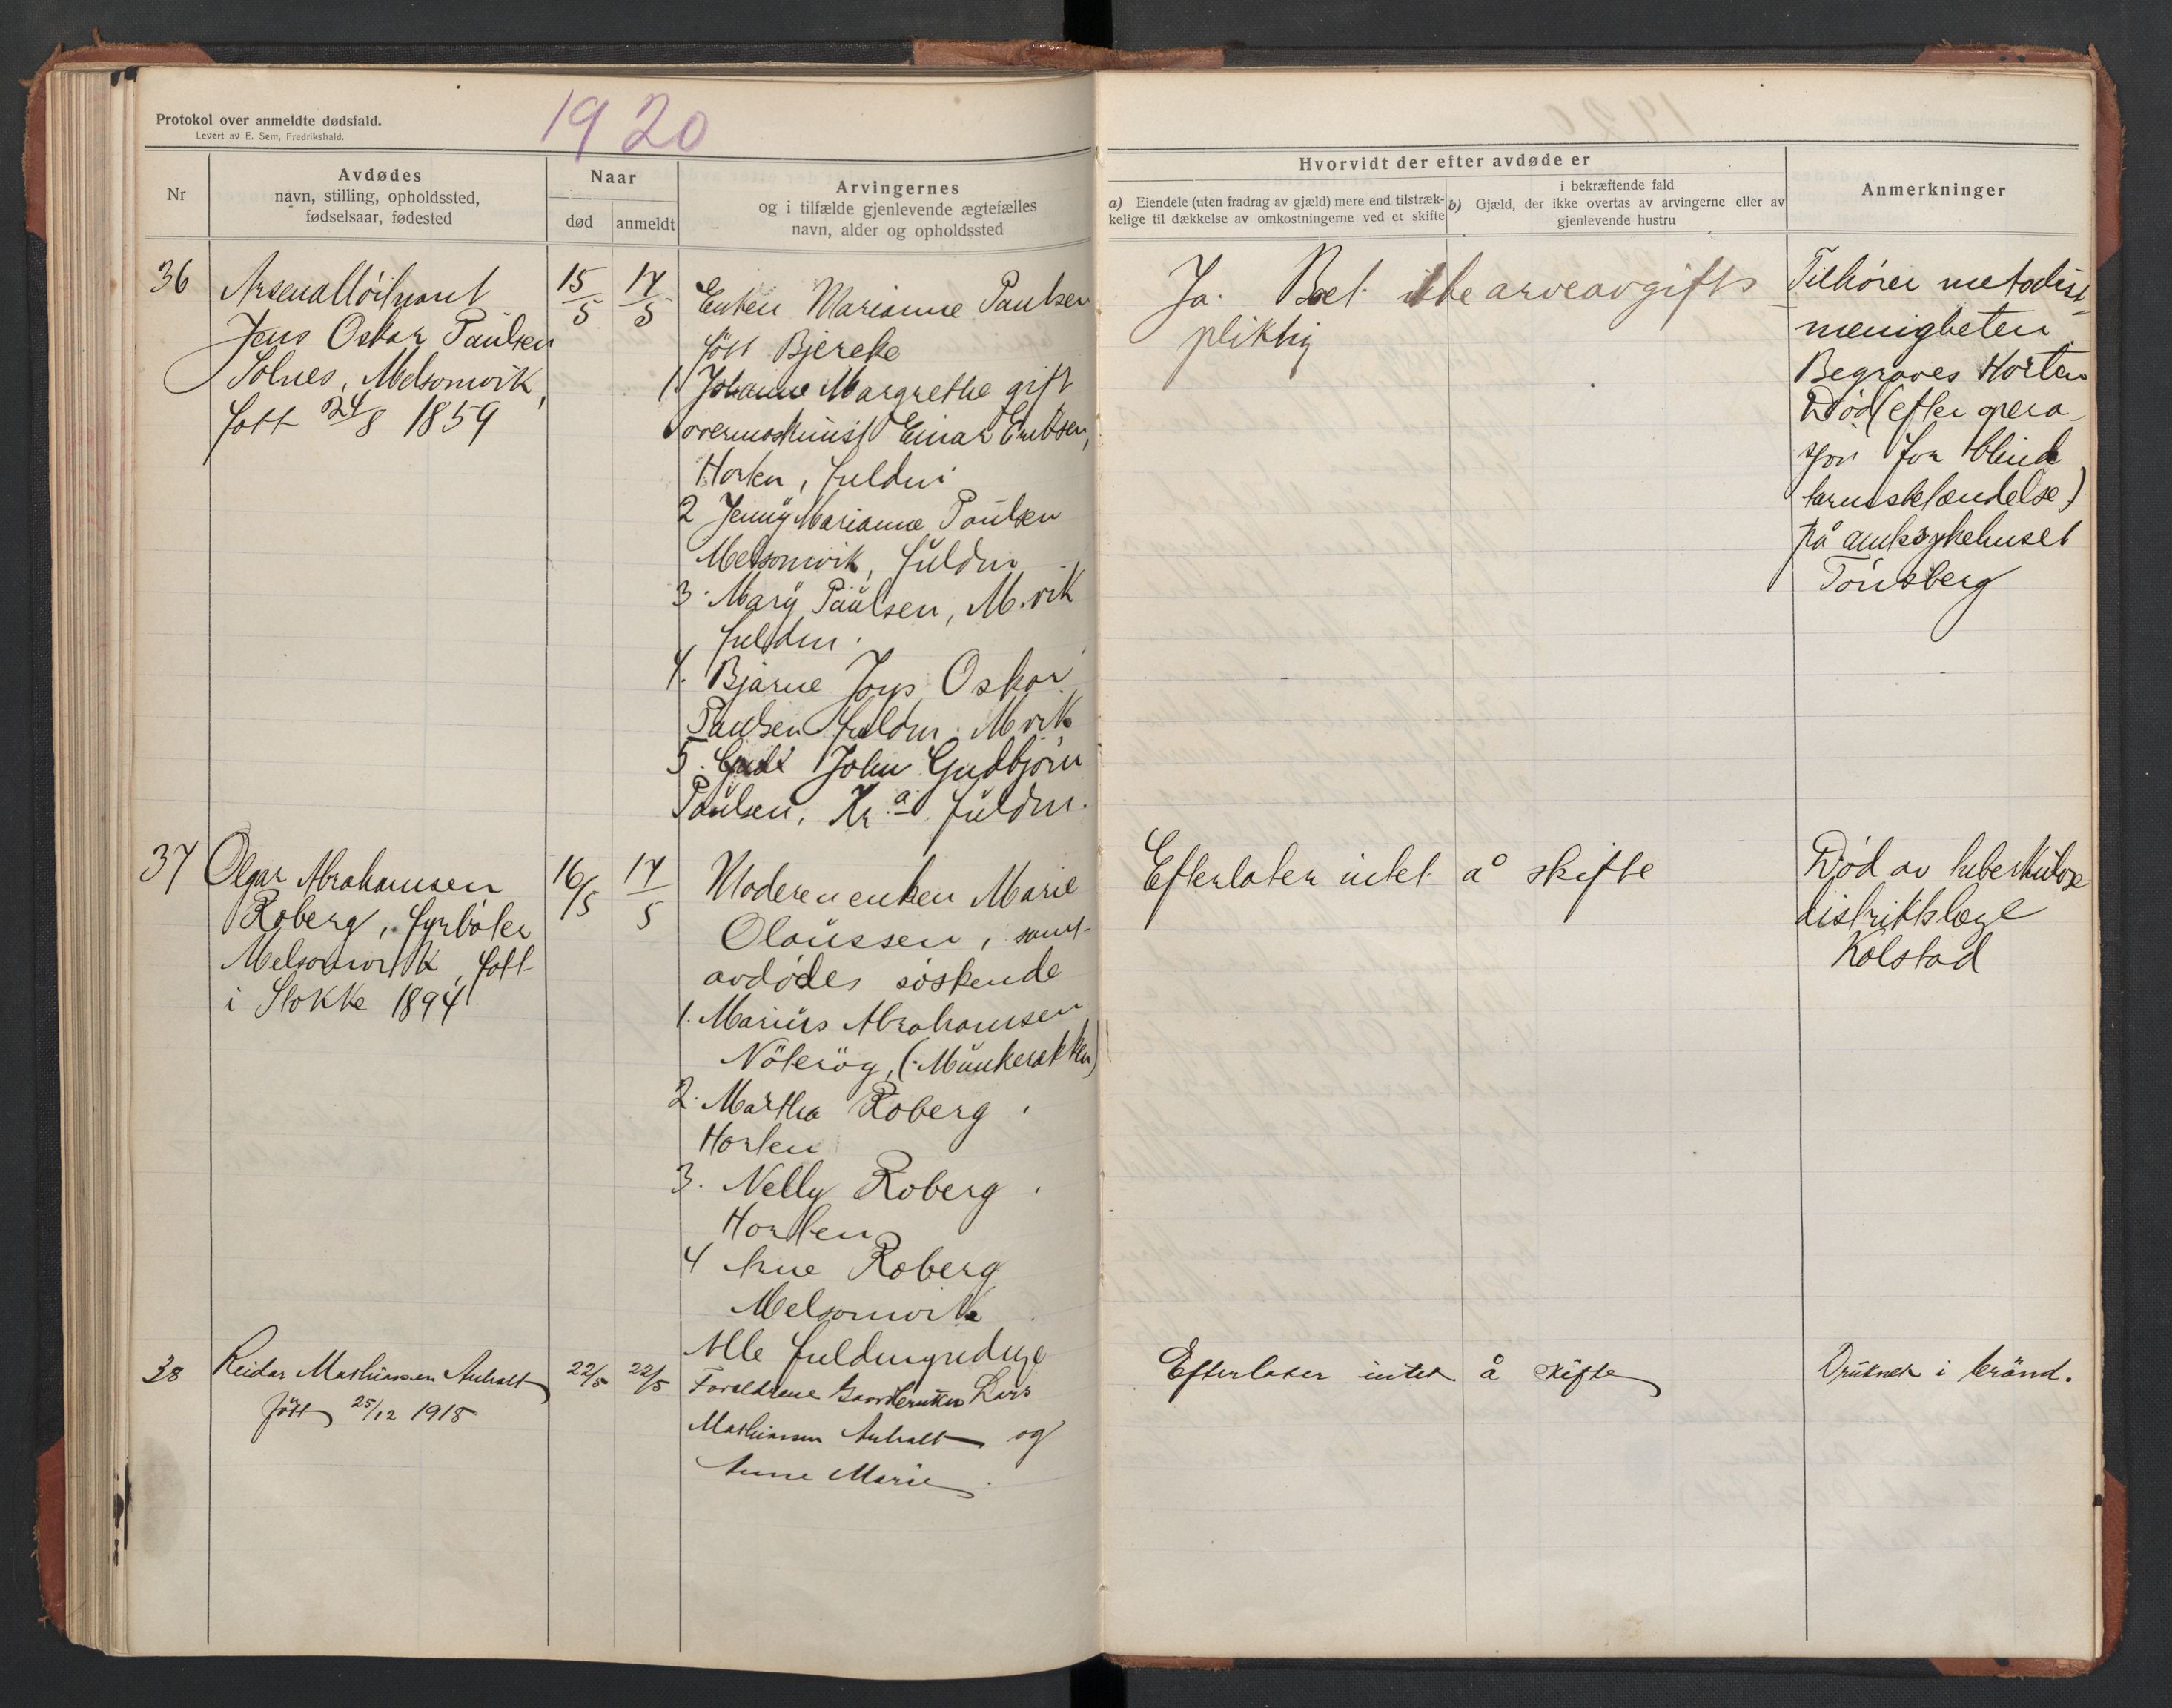 Protokol over anmeldte dødsfald.
Levert av E. Sem, Fredrikshald.
1920
Nr
Avdødes
navn, stilling, opholdssted,
fødselsaar, fødested
Naar
død
anmeldt
Arvingernes
og i tilfælde gjenlevende ægtefælles
navn, alder og opholdssted
Hvorvidt der efter avdøde er
a) Eiendele (uten fradrag av gjæld) mere end tilstræk-
kelige til dækkelse av omkostningerne ved et skifte
i bekræftende fald
b) Gjæld, der ikke overtas av arvingerne eller av
gjenlevende hustru
Anmerkninger
36
Arsenalløitnant
Jens Oskar Paulsen
Solnes, Melsomvik,
født 24/8 1859
15/5
17/5
Enken Marianne Paulsen
født Bjereke
1. Johanne Margrethe gift
overmaskinist Einar
Horten, fuldm.
2 Jenny Marianne Paulsen
Melsomvik, fuldm
3. Mary Paulsen, M.vik
fuldm.
4. Bjarne Jens Oskar
Paulsen fuldm. M.vik
5. John Gudbjørn
Paulsen, Kr.a. fuldm.
Ja. Boet ikke arveavgifts
pliktig
Tilhører metodist
menigheten.
Begraves Horten
Død (efter opera
sjon for blind
tarmsbetændelse)
på amtssykehuset
Tönsberg
37
Olgar Abrahamsen
Roberg, fyrbøter
Melsomvik, født
i Stokke 1894
16/5
17/5
Moderen enken Marie
Olaussen, samt
avdødes søskende
1. Marius Abrahamsen
Nöteröy, (Munkerekken)
2. Martha Roberg
Horten
3. Nelly Roberg
Horten
4 Anne Roberg
Melsomvik
Alle fuldmyndige
Efterlater intet å skifte
Død av tuberkulose
distriktslæge
Kolstad
38
Reidar Mathiassen Anholt
født 25/12 1918
22/5
22/5
Forældrene Gaardbruker Lars
Mathiassen Anholt og
Anne Marie.
Efterlater intet å skifte
Druknet i brönd.